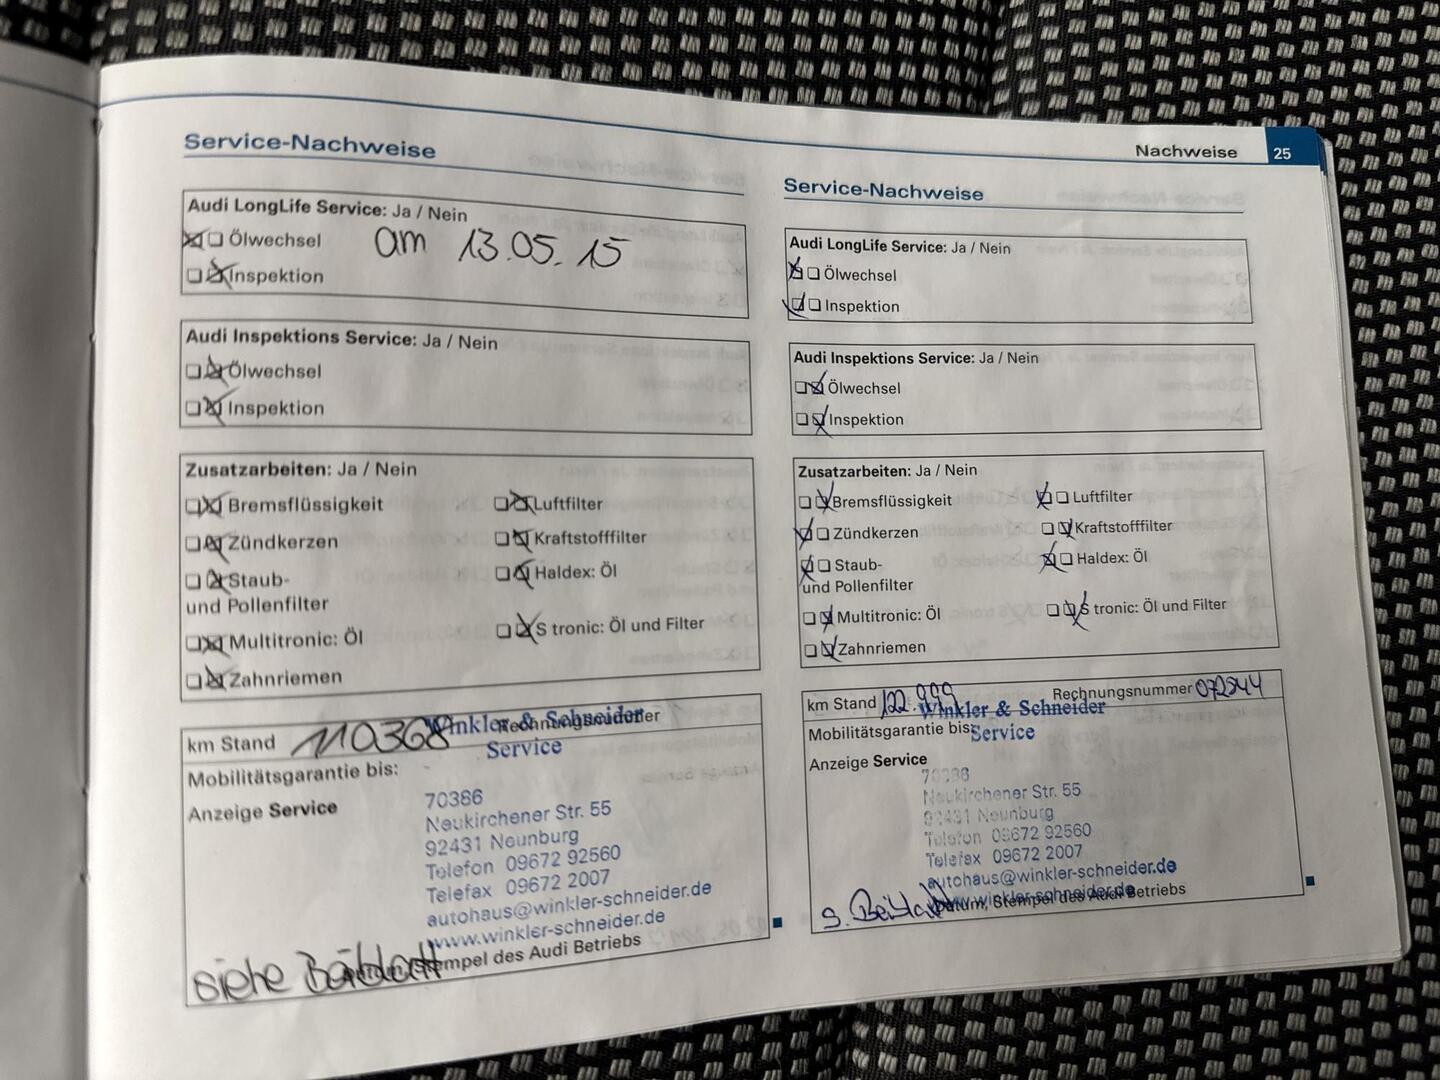 Nachweise 25
Service-Nachweise
Audi LongLife Service: Ja / Nein
Ölwechsel am 13.05.15
Inspektion
Audi Inspektions Service: Ja / Nein
Ölwechsel
Inspektion
Zusatzarbeiten: Ja / Nein
Bremsflüssigkeit Luftfilter
Zündkerzen Kraftstofffilter
Staub- Haldex: Öl
und Pollenfilter
Multitronic: Öl S tronic: Öl und Filter
Zahnriemen
Winkler & Schneider
km Stand 110368 Rechnungsnummer
Service
Mobilitätsgarantie bis:
Anzeige Service
70386
Neukirchener Str. 55
92431 Neunburg
Telefon 09672 92560
Telefax 09672 2007
autohaus@winkler-schneider.de
www.winkler-schneider.de
Datum, Stempel des Audi Betriebs
siehe Beiblatt
Service-Nachweise
Audi LongLife Service: Ja / Nein
Ölwechsel
Inspektion
Audi Inspektions Service: Ja / Nein
Ölwechsel
Inspektion
Zusatzarbeiten: Ja / Nein
Bremsflüssigkeit Luftfilter
Zündkerzen Kraftstofffilter
Staub- Haldex: Öl
und Pollenfilter
Multitronic: Öl S tronic: Öl und Filter
Zahnriemen
km Stand 122.999 Rechnungsnummer 072244
Winkler & Schneider
Mobilitätsgarantie bis:
Service
Anzeige Service
70386
Neukirchener Str. 55
92431 Neunburg
Telefon 09672 92560
Telefax 09672 2007
autohaus@winkler-schneider.de
www.winkler-schneider.de
Datum, Stempel des Audi Betriebs
s. Beiblatt